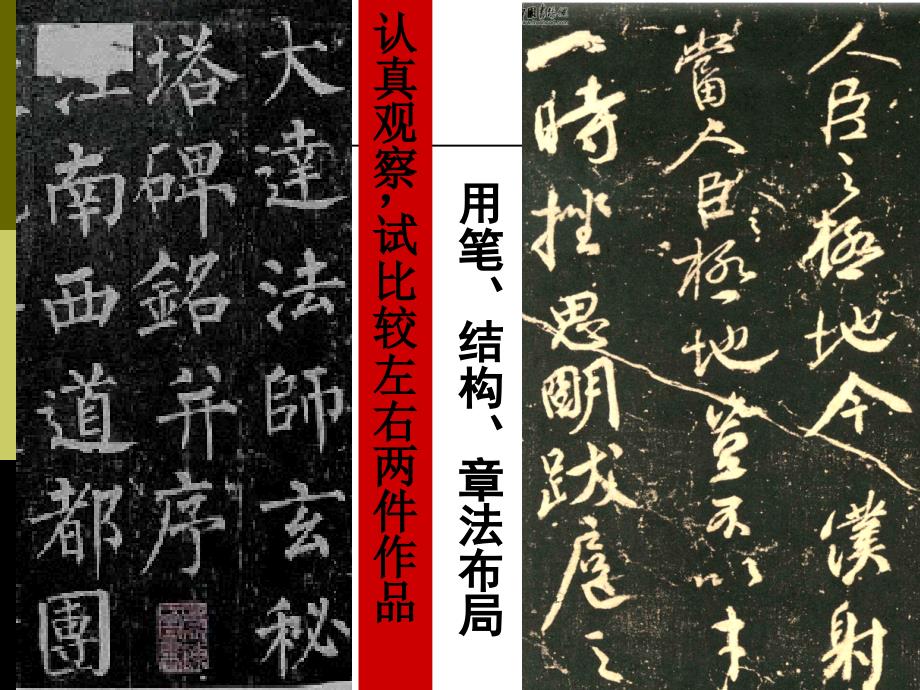 大達法師玄秘
塔碑銘并序
江南西道都團
认真观察,试比较左右两件作品
用笔、结构、章法布局
人臣之極地今僕射
當人臣之極地豈不以才
一時挫思明跋扈之